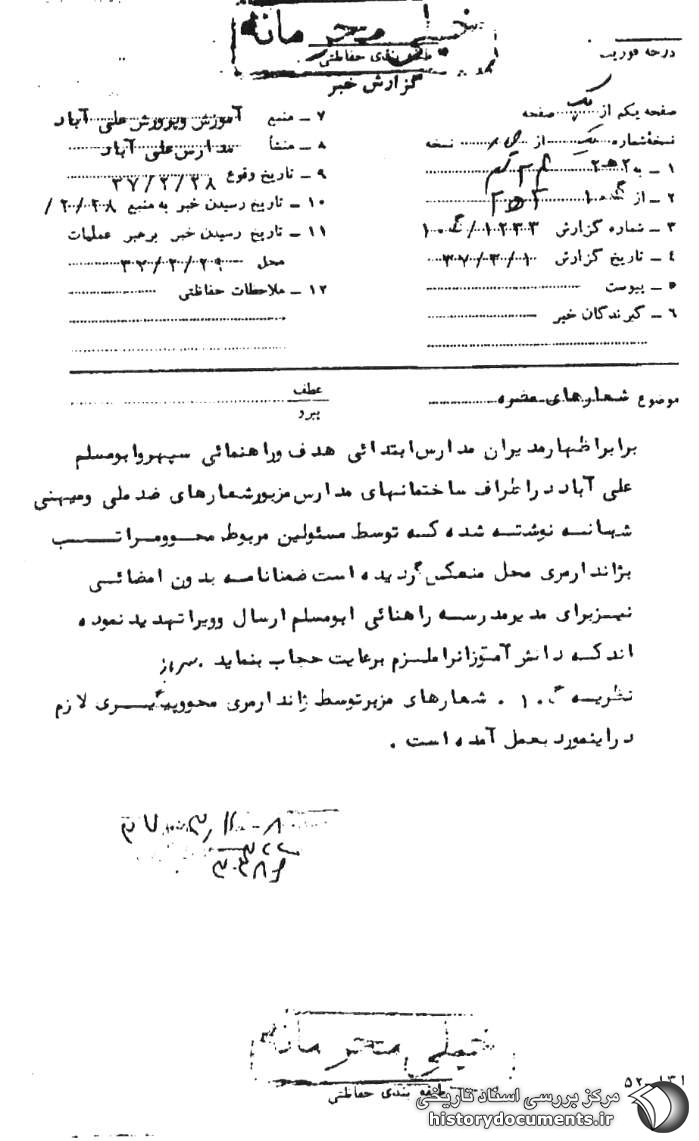 خیلی محرمانه
طبقه بندی حفاظتی
گزارش خبر
درجه فوریت
صفحه یکم از یک صفحه
نسخه شماره یک از نسخه
۱ ـ به ۲ ه‍ ۲
۲ ـ از
۳ ـ شماره گزارش ۱۲۳۳ / ۱۰ گ
٤ ـ تاریخ گزارش ۳۷/۳/۱
۵ ـ پیوست
٦ ـ گیرندگان خبر
۷ ـ منبع آموزش وپرورش علی آباد
۸ ـ منشأ مدارس علی آباد
۹ ـ تاریخ وقوع ۳۷/۲/۲۸
۱۰ ـ تاریخ رسیدن خبر به منبع ۲۸/۲/
۱۱ ـ تاریخ رسیدن خبر برهبر عملیات
محل ۳۷/۲/۲۹
۱۲ ـ ملاحظات حفاظتی
موضوع شعارهای مضره
عطف
پیرو
برابر اظهار مدیران مدارس ابتدائی هدف وراهنمائی سپهر وابومسلم
علی آباد در اطراف ساختمانهای مدارس مزبور شعارهای ضد ملی ومیهنی
شبانه نوشته شده که توسط مسئولین مربوط محو ومراتب
بژاندارمری محل منعکس گردیده است ضمنا نامه بدون امضائی
نیز برای مدیر مدرسه راهنائی ابومسلم ارسال وویرا تهدید نموده
اند که دانش آموزانرا ملزم برعایت حجاب بنماید .
نظریه ۱۰ گ . شعارهای مزبر توسط ژاندارمری محو وپیگیری لازم
در اینمورد بعمل آمده است .
خیلی محرمانه
طبقه بندی حفاظتی
۵۲ ـ ۱۳۱
مرکز بررسی اسناد تاریخی
historydocuments.ir